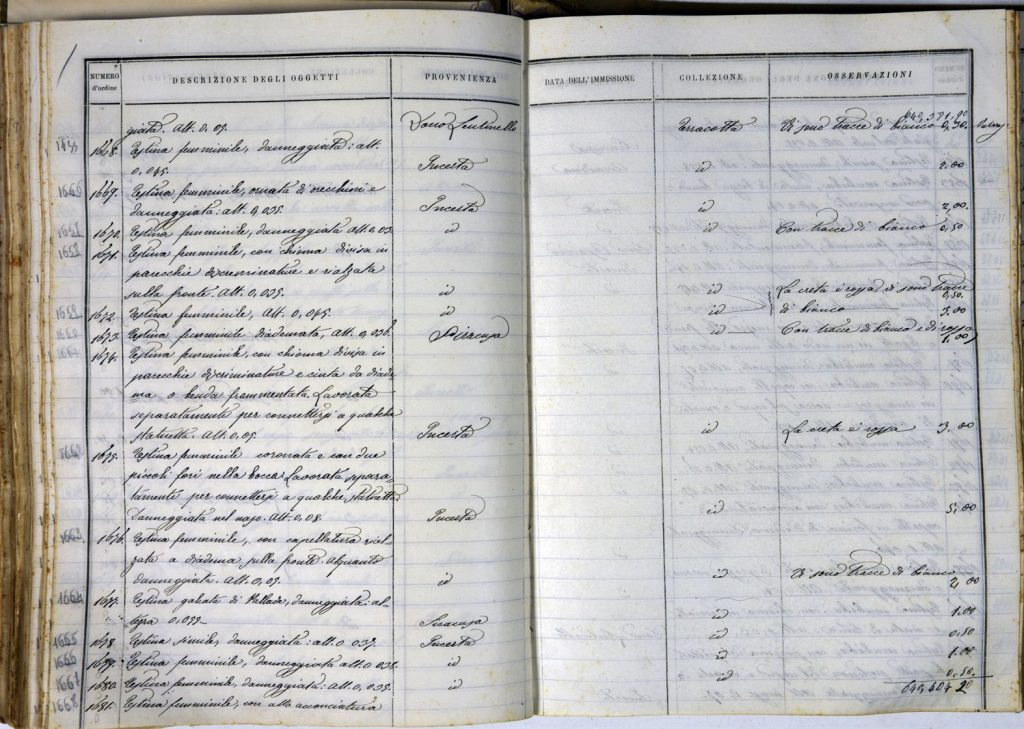 NUMERO d'ordine DESCRIZIONE DEGLI OGGETTI PROVENIENZA DATA DELL'IMMISSIONE COLLEZIONE OSSERVAZIONI
giata. Alt. 0.05. Dono Terracotta Vi sono tracce di bianco 0,50
1668. Testina femminile, danneggiata: alt.
0,045. Incerta id 2.00
1669. Testina femminile, ornata di orecchini e
danneggiata: alt. 0,035. Incerta 2,00.
1670. Testina femminile, danneggiata alt. 0,03 id id Con tracce di bianco 0,50
1671. Testina femminile, con chioma divisa in
parecchie discriminature e rialzata
sulla fronte. Alt. 0,035. id id La creta è rossa. Vi sono tracce 0,50.
1672. Testina femminile, Alt. 0,045. id id di bianco 3.00
1673. Testina femminile diademata, Alt. 0,036. Siracusa id Con tracce di bianco e di rosso 1,00
1674. Testina femminile, con chioma divisa in
parecchie discriminature e cinta da diade-
ma o benda frammentata. Lavorata
separatamente per connettersi a qualche
statuetta. Alt. 0,05. Incerta id La creta è rossa 3.00
1675. Testina femminile coronata e con due
piccoli fori nella bocca. Lavorata separa-
tamente per connettersi a qualche statuetta.
Danneggiata nel naso. Alt. 0,08. Incerta id 5,00
1676. Testina femminile, con capellatura rial-
zata a diadema sulla fronte. Alquanto
danneggiata. Alt. 0,05. id id Vi sono tracce di bianco 2,00
1677. Testina galeata di Pallade, danneggiata: al-
tezza Siracusa id 1.00
1678. Testina simile, danneggiata: alt. 0.035. Incerta id 0,50
1679. Testina femminile, danneggiata alt. 0,035. id id 1.00
1680. Testina femminile, danneggiata: Alt. 0,035. id id 0,50.
1681. Testina femminile, con alta acconciatura 640,404 20
1665
1666
1667
1668